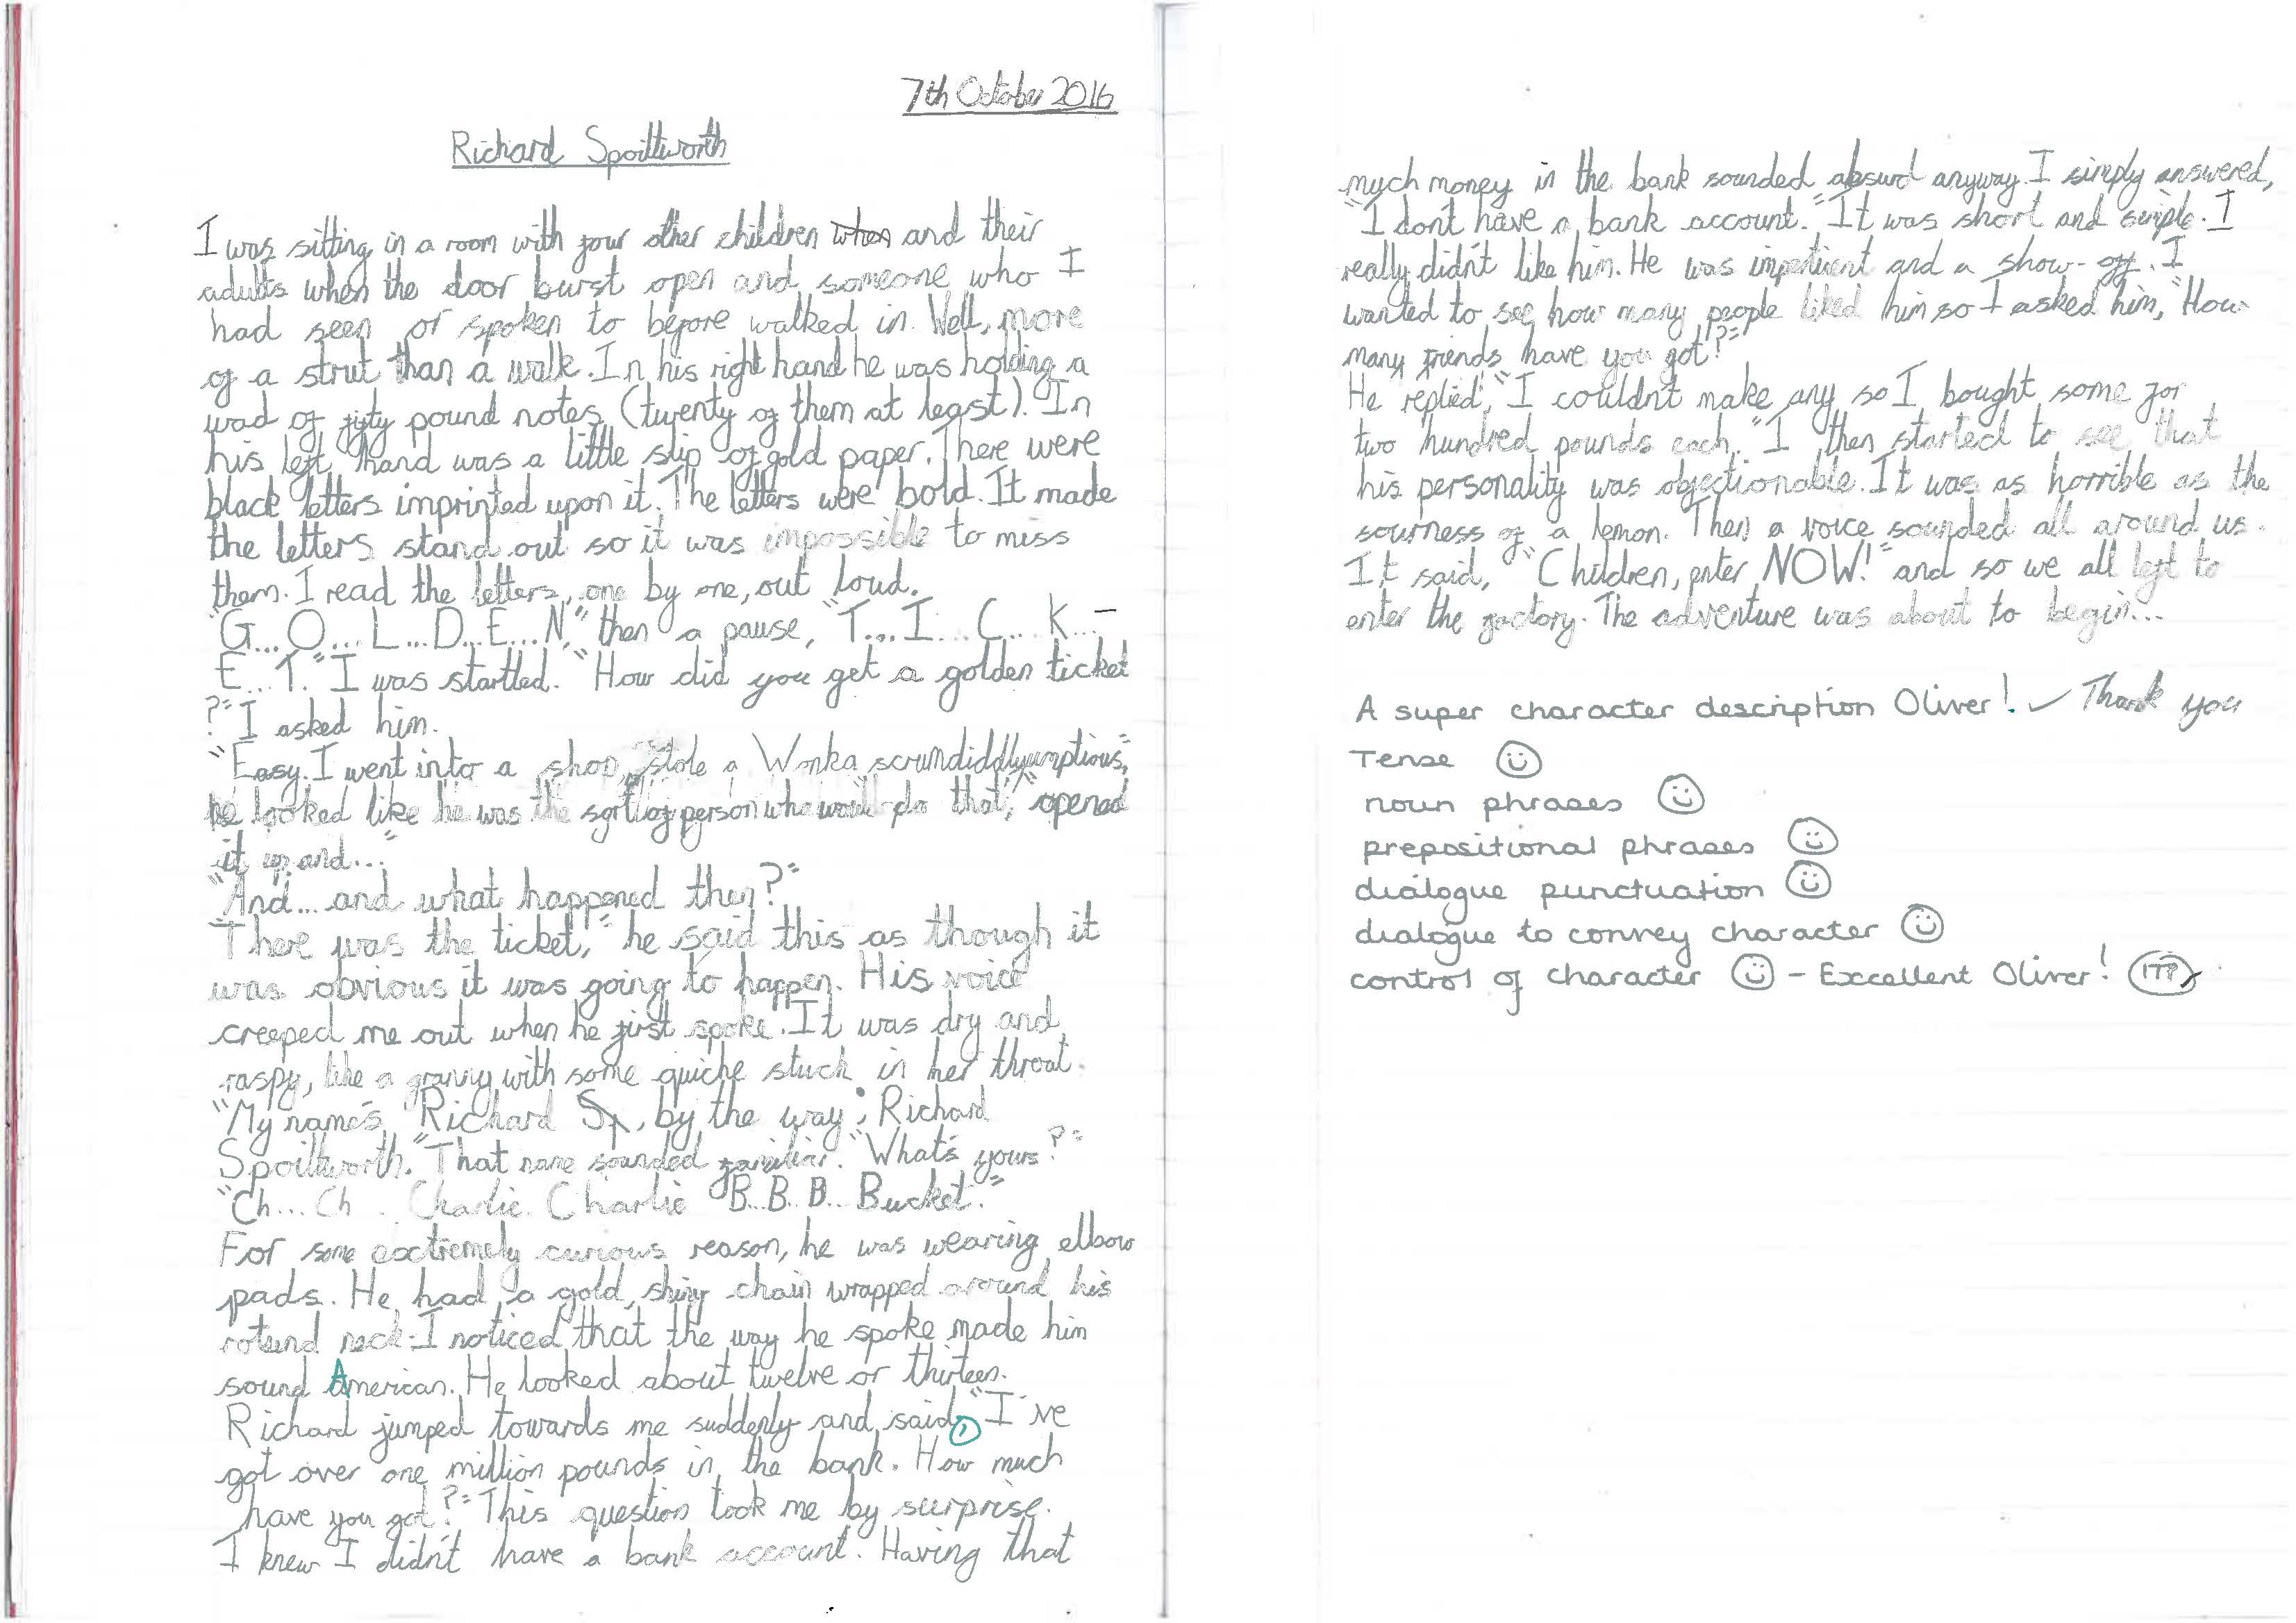 7th October 2016
Richard Spoiltworth
I was sitting in a room with four other children when and their
adults when the door burst open and someone who I
had seen or spoken to before walked in. Well, more
of a strut than a walk. In his right hand he was holding a
wad of fifty pound notes (twenty of them at least). In
his left hand was a little slip of gold paper. There were
black letters imprinted upon it. The letters were bold. It made
the letters stand out so it was impossible to miss
them. I read the letters, one by one, out loud.
"G...O...L...D...E...N," then a pause, "T...I...C...K...-
E...T." I was startled. "How did you get a golden ticket
?" I asked him.
"Easy. I went into a shop, stole a Wonka scrumdiddlyumptious,"
he looked like he was the sort of person who would do that, "opened
it up and..."
"And... and what happened then?"
"There was the ticket," he said this as though it
was obvious it was going to happen. His voice
creeped me out when he first spoke. It was dry and
raspy, like a granny with some quiche stuck in her throat.
"My name's Richard S, by the way; Richard
Spoiltworth." That name sounded familiar. "What's yours?"
"Ch...Ch...Charlie. Charlie B...B...B...Bucket."
For some exctremely curious reason, he was wearing elbow
pads. He had a gold, shiny chain wrapped around his
rotund neck. I noticed that the way he spoke made him
sound American. He looked about twelve or thirteen.
Richard jumped towards me suddenly and said, "I've
got over one million pounds in the bank. How much
have you got?" This question took me by surprise.
I knew I didn't have a bank account. Having that
much money in the bank sounded absurd anyway. I simply answered,
"I don't have a bank account." It was short and simple. I
really didn't like him. He was impertinent and a show-off. I
wanted to see how many people liked him so I asked him, "How
many friends have you got?"
He replied, "I couldn't make any so I bought some for
two hundred pounds each." I then started to see that
his personality was objectionable. It was as horrible as the
sourness of a lemon. Then a voice sounded all around us.
It said, "Children, enter NOW!" and so we all left to
enter the factory. The adventure was about to begin...
A super character description Oliver! ✓ Thank you
Tense ☺
noun phrases ☺
prepositional phrases ☺
dialogue punctuation ☺
dialogue to convey character ☺
control of character ☺ - Excellent Oliver!